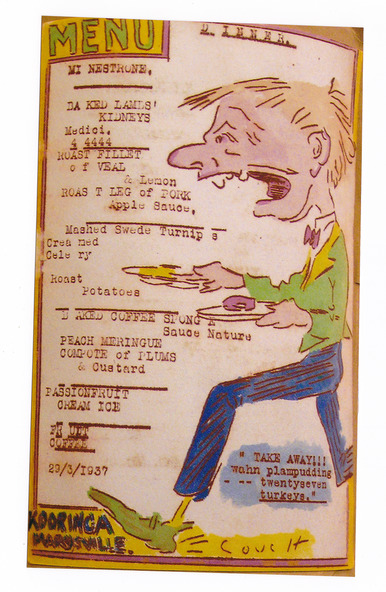 MENU
DINNER.
MINESTRONE,
BAKED LAMBS'
KIDNEYS
Medici.
4 4444
ROAST FILLET
of VEAL
& Lemon
ROAST LEG of PORK
Apple Sauce,
Mashed Swede Turnips
Creamed
Celery
Roast
Potatoes
BAKED COFFEE SPONGE
Sauce Nature
PEACH MERINGUE
COMPOTE of PLUMS
& Custard
PASSIONFRUIT
CREAM ICE
FRUIT
COFFEE
29/3/1937
" TAKE AWAY!!!
wahn plampudding
- -- twentyseven
turkeys."
KOORINGA
MARYSVILLE.
COUCH